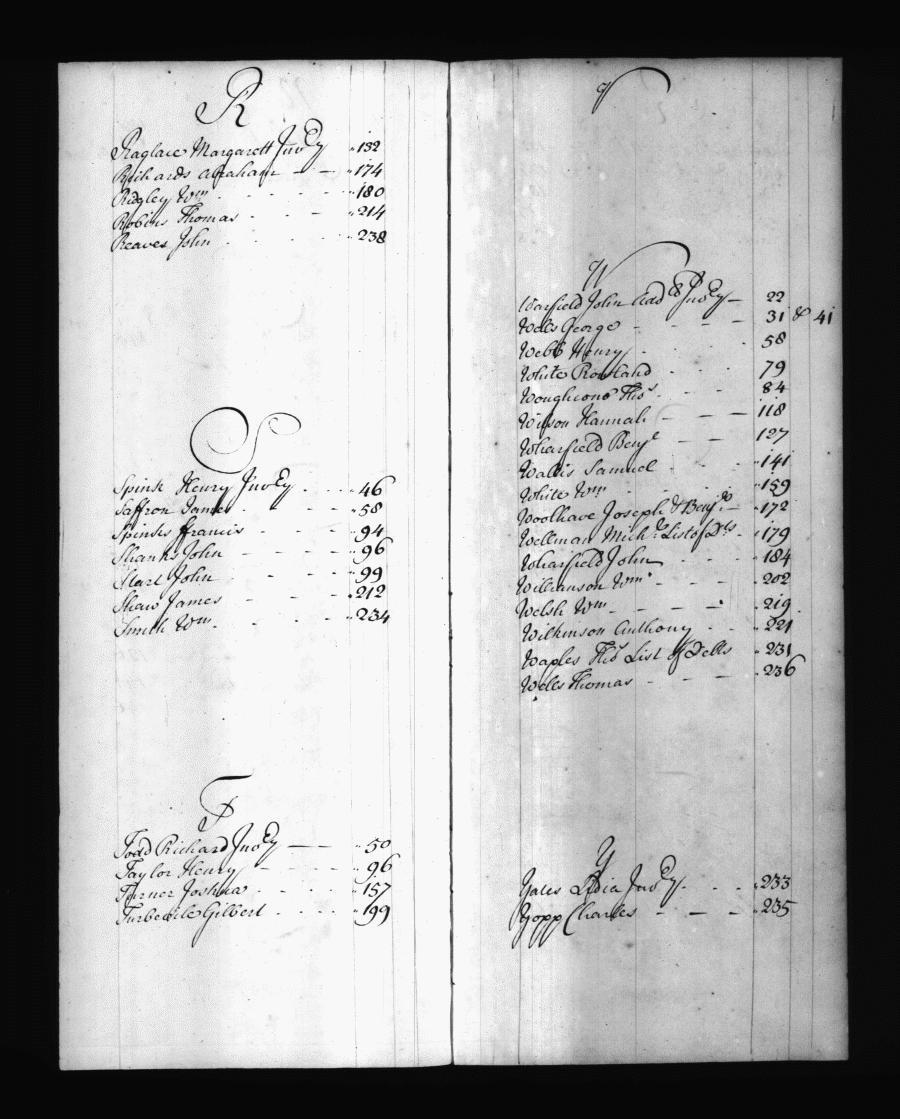 R
Raglace Margarett Invʳʸ 132
Richards Abraham — — 174
Ridgley Wᵐ 180
Robins Thomas 214
Reaves John 238
S
Spink Henry Invʳʸ 46
Saffron James 58
Spinks ffrancis 94
Shanks John 96
Start John 99
Shaw James 212
Smith Wᵐ 234
T
Todd Richard Invʳʸ — — 50
Taylor Henry 96
Turner Joshua 157
Turbevile Gilbert 199
V
W
Warfield John Add & Invʳʸ — 22
Wells George 31 & 41
Webb Henry 58
White Rowland 79
Thoˢ 84
Wilson Hannah 118
Wharfield Benjᵃ 127
Wallis Samuel 141
White Wᵐ 159
Woolhave Joseph & Benjᵃ 172
Wellman Michˡ List of Dᵗˢ 179
Wharfield John 184
Wilkinson Wᵐ 202
Welsh Wᵐ 219
Wilkinson Anthony 221
Waples Thoˢ List of Debts 231
Wells Thomas 236
Y
Yates Lidia Invʳʸ 233
Yopp Charles 235